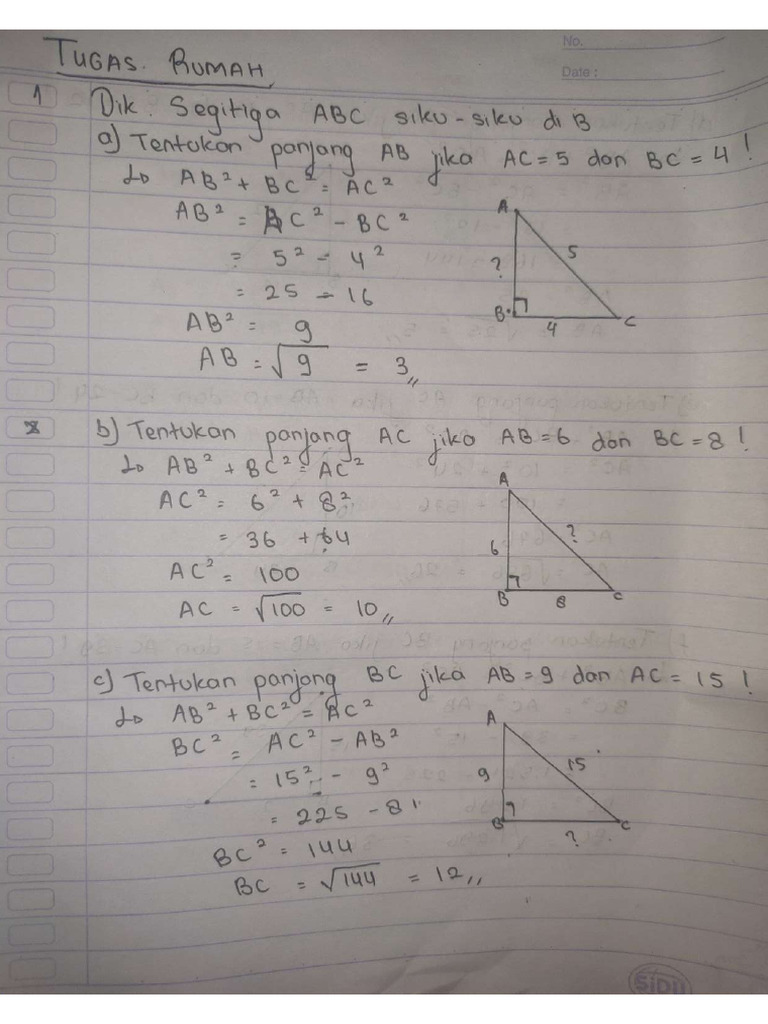 No.
Date :
TUGAS. RUMAH
1 Dik. Segitiga ABC siku-siku di B
a) Tentukan panjang AB jika AC = 5 dan BC = 4 !
AB² + BC² = AC²
AB² = AC² - BC²
= 5² - 4²
= 25 - 16
AB² = 9
AB = √9 = 3,,
A
?
5
B
4
C
b) Tentukan panjang AC jika AB = 6 dan BC = 8 !
AB² + BC² = AC²
AC² = 6² + 8²
= 36 + 64
AC² = 100
AC = √100 = 10,,
A
6
?
B
8
C
c) Tentukan panjang BC jika AB = 9 dan AC = 15 !
AB² + BC² = AC²
BC² = AC² - AB²
= 15² - 9²
= 225 - 81
BC² = 144
BC = √144 = 12,,
A
9
15
B
?
C
SiDU